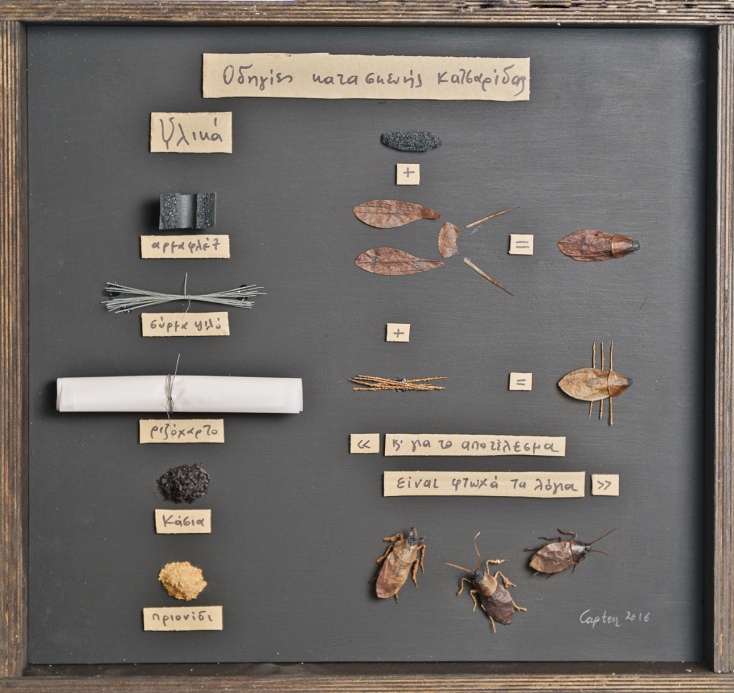 Οδηγίες κατασκευής κατσαρίδας
Υλικά
+
αρμαφλέξ
=
σύρμα ψιλό
+
=
ριζόχαρτο
« κ' για το αποτέλεσμα
είναι φτωχά τα λόγια »
κάσια
πριονίδι
Capten 2016